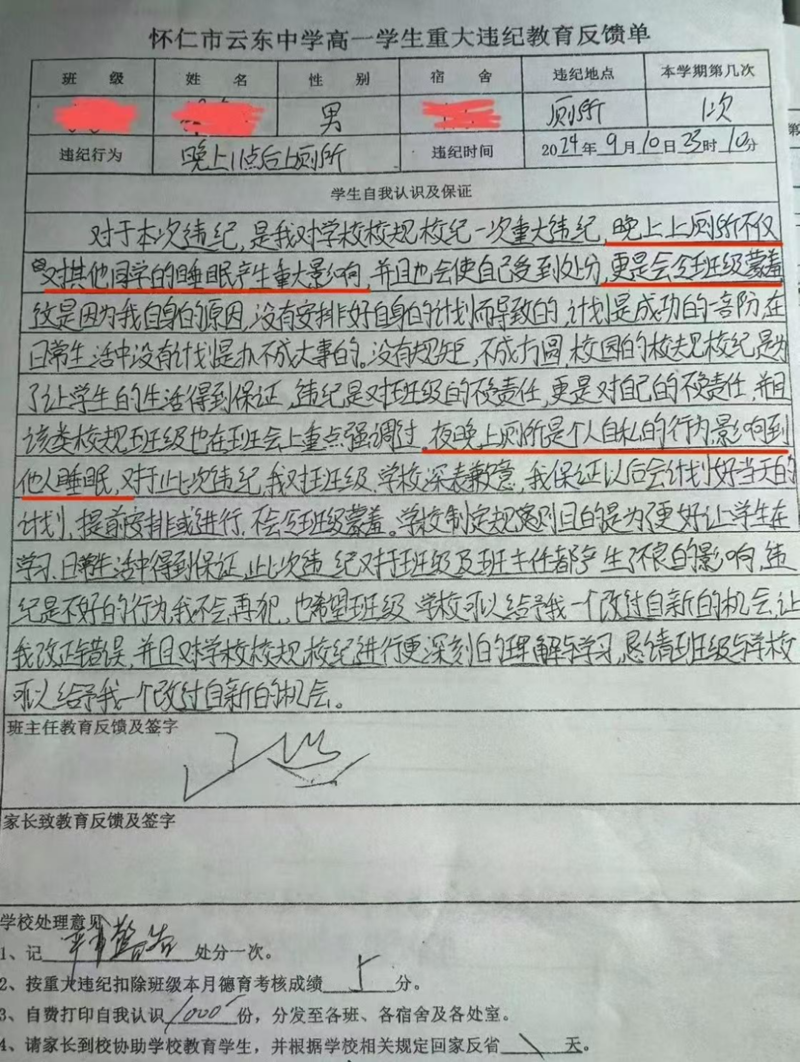 怀仁市云东中学高一学生重大违纪教育反馈单
班 级 姓 名 性 别 宿 舍 违纪地点 本学期第几次
男 厕所 1次
违纪行为 晚上11点后上厕所 违纪时间 2024年9月10日23时10分
学生自我认识及保证
对于本次违纪,是我对学校校规校纪一次重大违纪,晚上上厕所不仅
对其他同学的睡眠产生重大影响,并且也会使自己受到处分,更是会令班级蒙羞
这是因为我自身的原因,没有安排好自身的计划而导致的,计划是成功的一部分,在
日常生活中没有计划是办不成大事的。没有规矩,不成方圆,校园的校规校纪是为
了让学生的生活得到保证,违纪是对班级的不负责任,更是对自己的不负责任,并且
该类校规班级也在班会上重点强调过,夜晚上厕所是个人自私的行为,影响到
他人睡眠,对于此次违纪,我对班级、学校深表歉意,我保证以后会计划好当天的
计划,提前安排或进行,不会令班级蒙羞。学校制定规则目的是为了更好让学生在
学习、日常生活中得到保证,此次违纪对班级及班主任都产生了不良的影响,违
纪是不好的行为,我不会再犯,也希望班级、学校可以给予我一个改过自新的机会,让
我改正错误,并且对学校校规、校纪进行更深刻的理解与学习,恳请班级与学校
可以给予我一个改过自新的机会。
班主任教育反馈及签字
家长致教育反馈及签字
学校处理意见
1、记 警告 处分一次。
2、按重大违纪扣除班级本月德育考核成绩 5 分。
3、自费打印自我认识 1000 份,分发至各班、各宿舍及各处室。
4、请家长到校协助学校教育学生,并根据学校相关规定回家反省 \ 天。